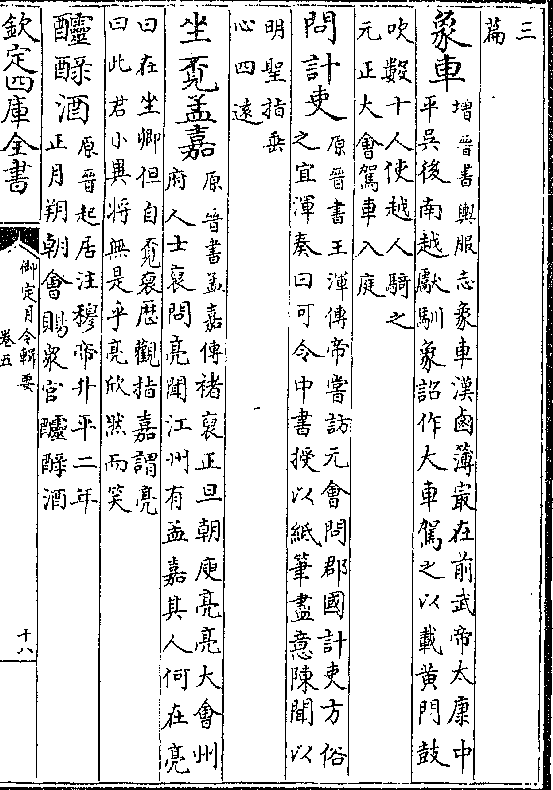 三
篇
象車增晉書輿服志象車漢鹵簿最在前武帝太康中
平吳後南越獻馴象詔作大車駕之以載黃門鼓
吹數十人使越人騎之
元正大會駕車入庭
問計吏原晉書王渾傳帝嘗訪元會問郡國計吏方俗
之宜渾奏曰可令中書授以紙筆盡意陳聞以
明聖指垂
心四遠
坐覔孟嘉原晉書孟嘉傳褚裒正旦朝庾亮亮大會州
府人士裒問亮聞江州有孟嘉其人何在亮
曰在坐卿但自覔裒歴觀指嘉謂亮
曰此君小異將無是乎亮欣然而笑
醽醁酒原晉起居注穆帝升平二年
正月朔朝會賜衆官醽醁酒
欽定四庫全書
御定月令輯要
卷五
十八